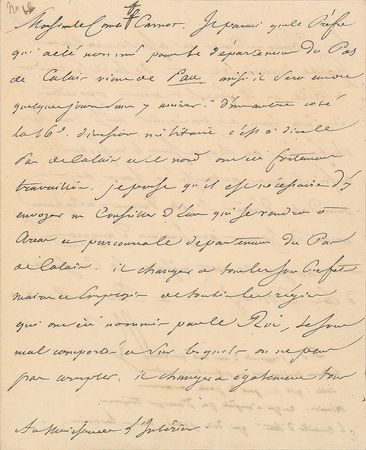 No 18
Monsieur le Comte Carnot. Je parmi que le Préfet
qui a été nommé pour le departement du Pas
de Calais vient de Pau ainsi il sera encore
quelques jours sans y arriver. D'un autre coté
la 16e. division militaire c'est à dire le
Pas de Calais et le nord ont été fortement
travaillés. je pense qu'il est nécessaire d'y
envoyer un Conseiller d'Etat qui se rendra à
Arras et parcourra le departement du Pas
de Calais. il changera tous les Sous Préfets
maires et Employés de toutes les régies
qui ont été nommés par le Roi, se sont
mal comportés et sur lesquels on ne peut
pas compter. il changera également tous
Au Ministre de l'Intérieur.